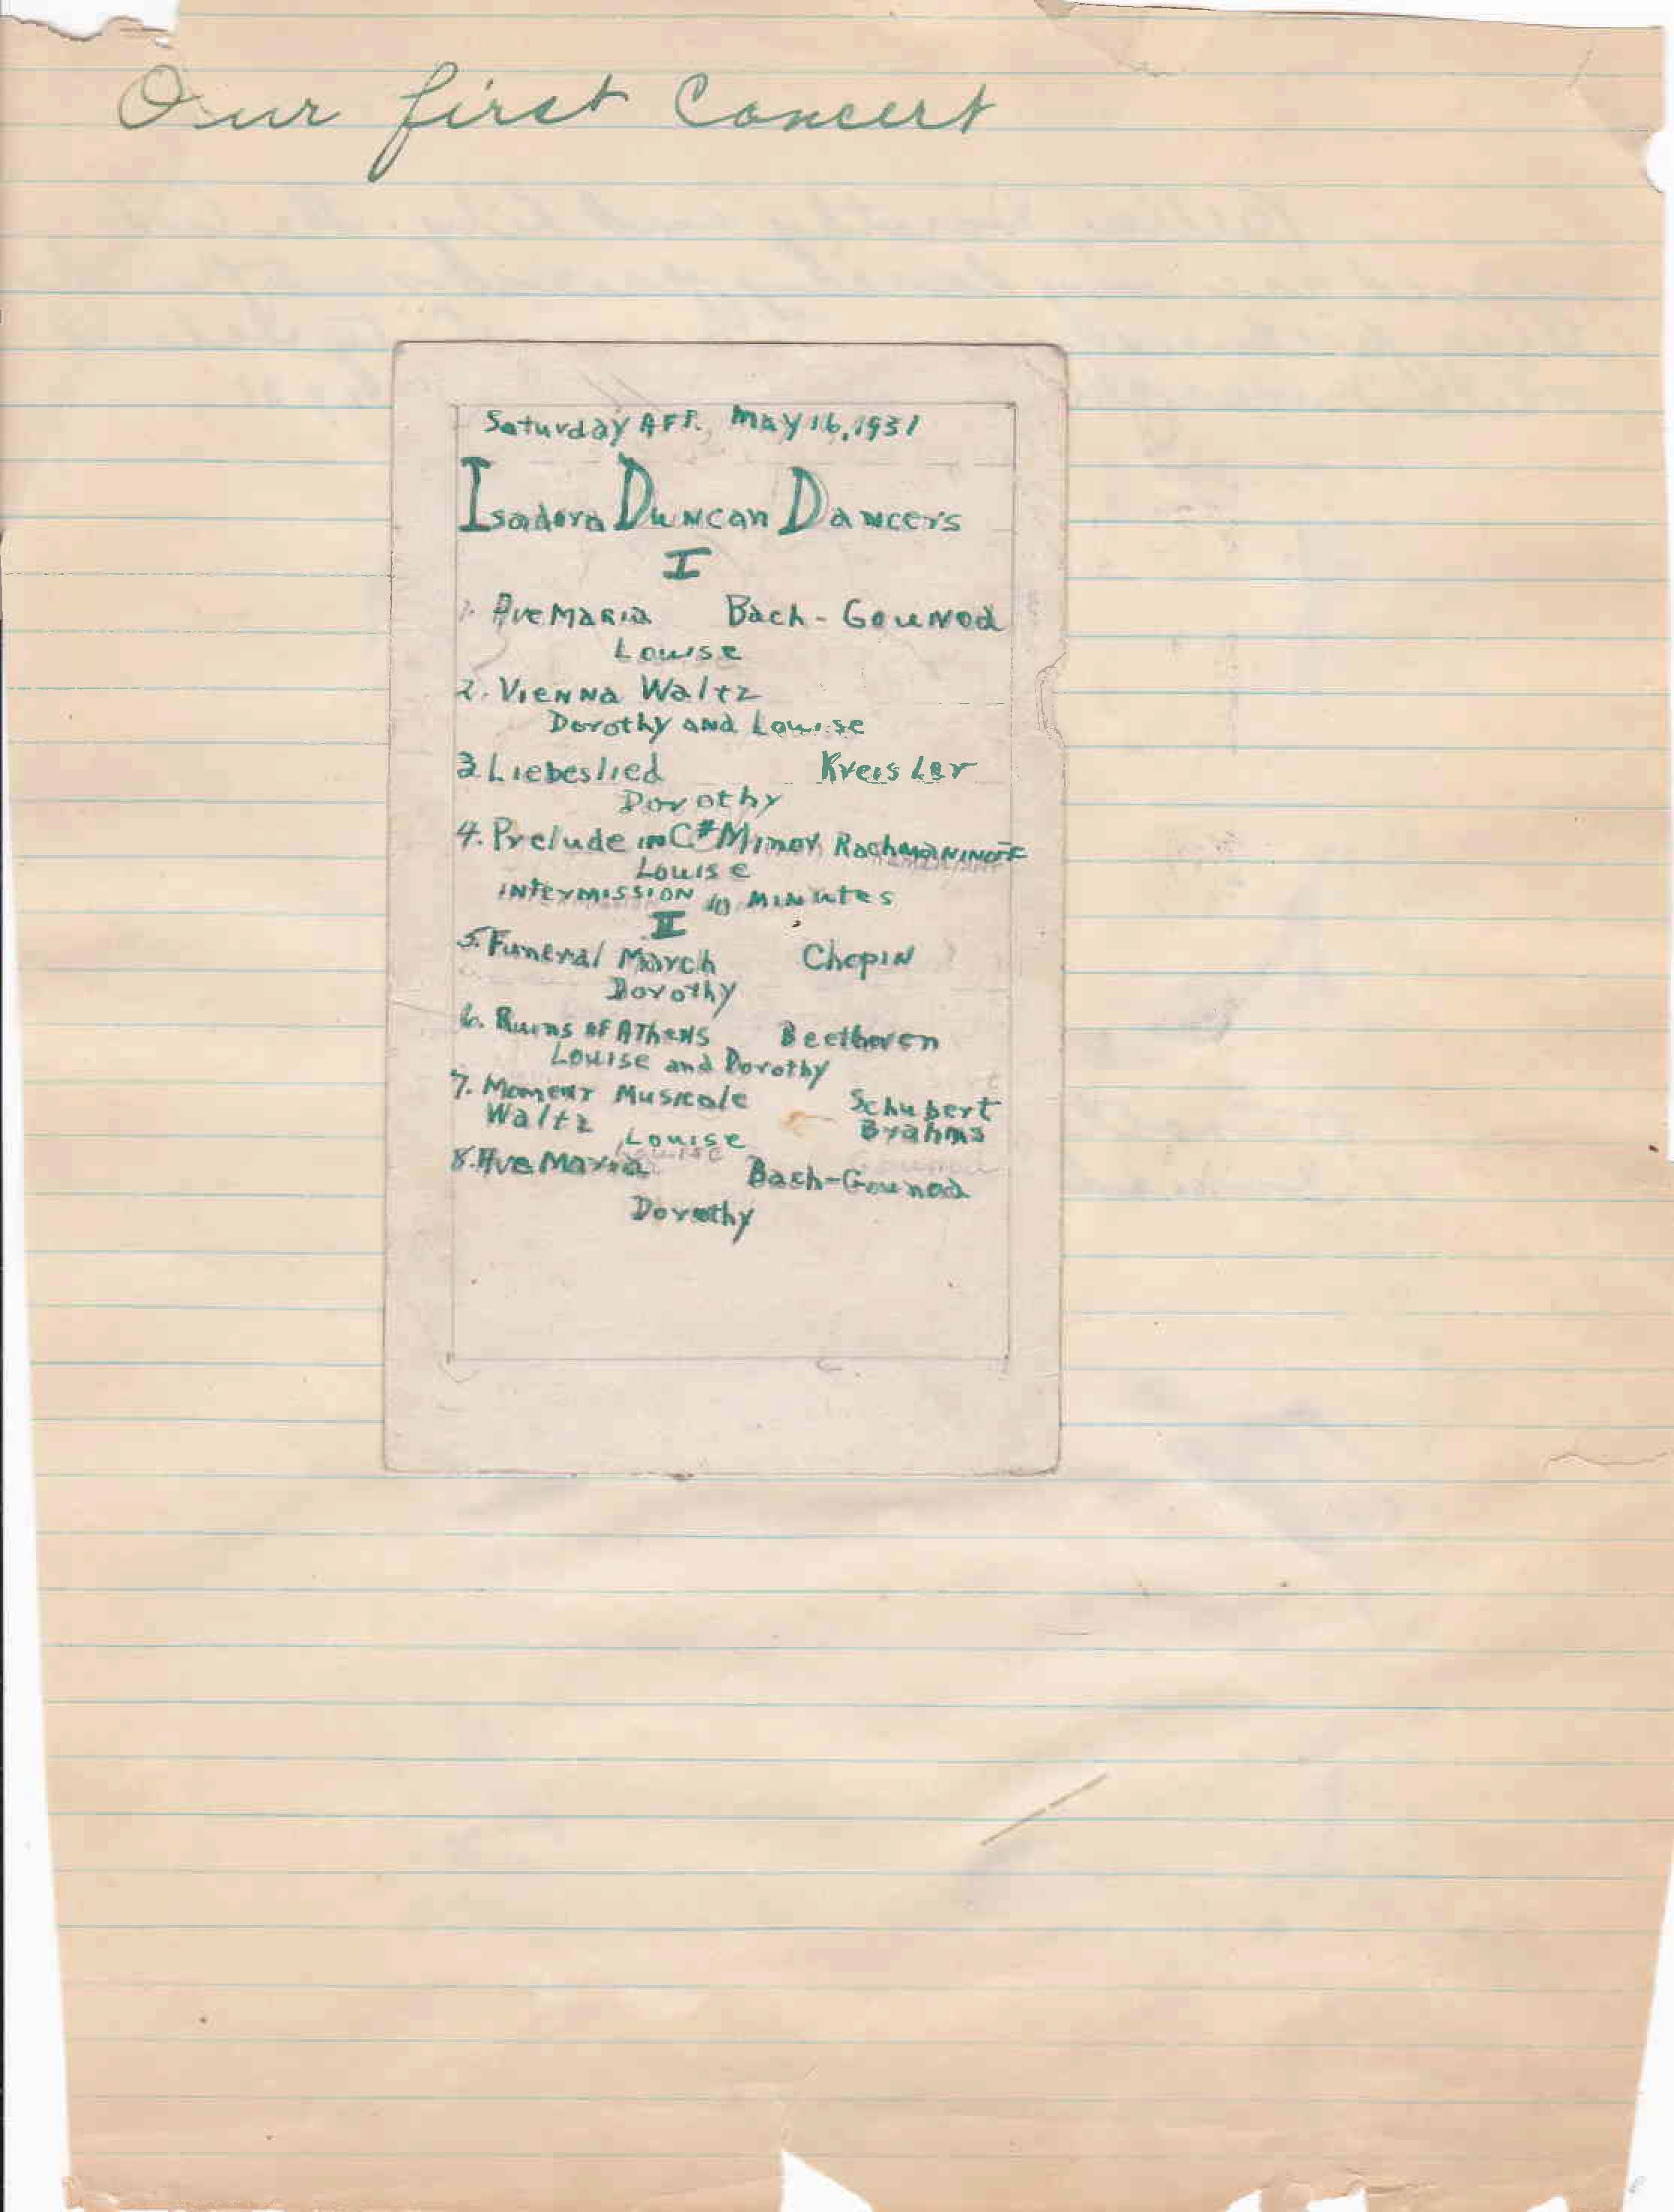 Our first Concert
Saturday AFT., May 16, 1931
Isadora Duncan Dancers
I
1. Ave Maria Bach - Gounod
Louise
2. Vienna Waltz
Dorothy and Louise
3. Liebeslied Kreisler
Dorothy
4. Prelude in C# Minor Rachmaninoff
Louise
Intermission 10 minutes
II
5. Funeral March Chopin
Dorothy
6. Ruins of Athens Beethoven
Louise and Dorothy
7. Moment Musicale Schubert
Waltz Brahms
Louise
8. Ave Maria Bach-Gounod
Dorothy